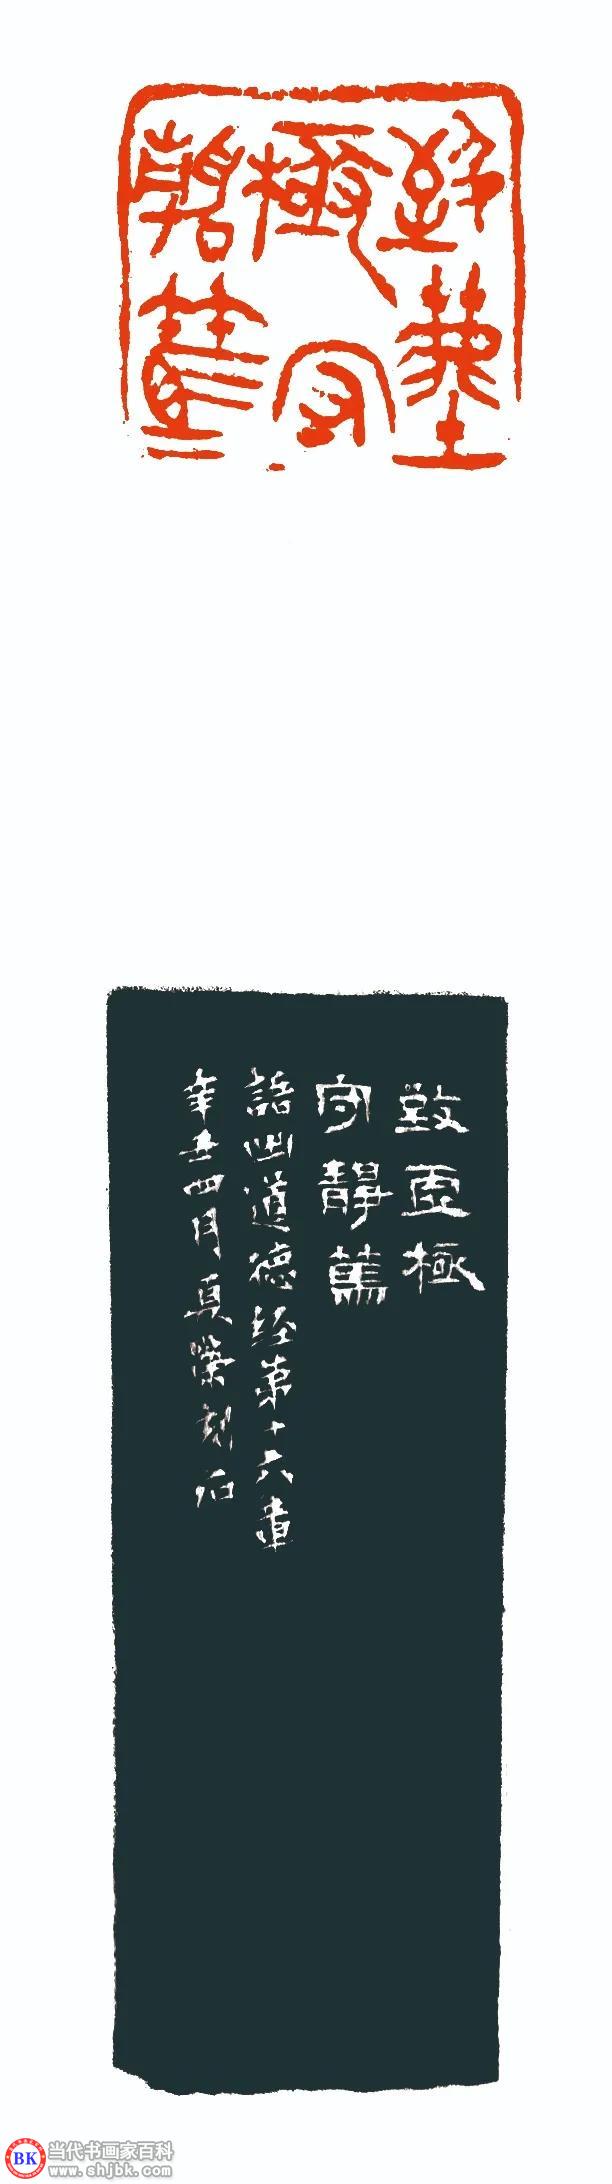 致虛
極守
靜篤
致虛極
守靜篤
語出道德經第十六章
辛丑四月真榮刻石
BK
当代书画家百科
www.shjbk.com